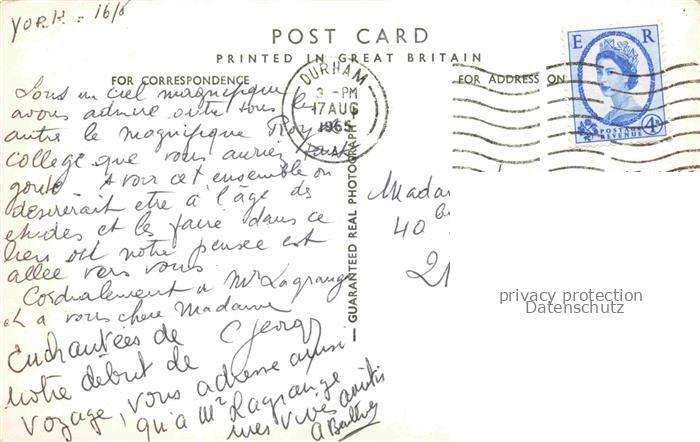 YORK - 16/8
POST CARD
PRINTED IN GREAT BRITAIN
FOR CORRESPONDENCE
FOR ADDRESS ON
E R
POSTAGE
REVENUE
4D
DURHAM
3 - PM
17 AUG
1965
GUARANTEED REAL PHOTOGRAPH
Sous un ciel magnifique
avons admiré outre tous les
autre le magnifique
college que vous auriez
gouté. A voir cet ensemble on
desirerait etre à l'âge des
etudes et les faire dans ce
lieu où notre pensée est
allée vers vous
Cordialement à Mr Lagrange
et a vous chere Madame
Enchantées de
notre début de
voyage, vous adresse ainsi
qu'à Mr Lagrange
mes vives amitiés
Madam
40 bis
privacy protection
Datenschutz